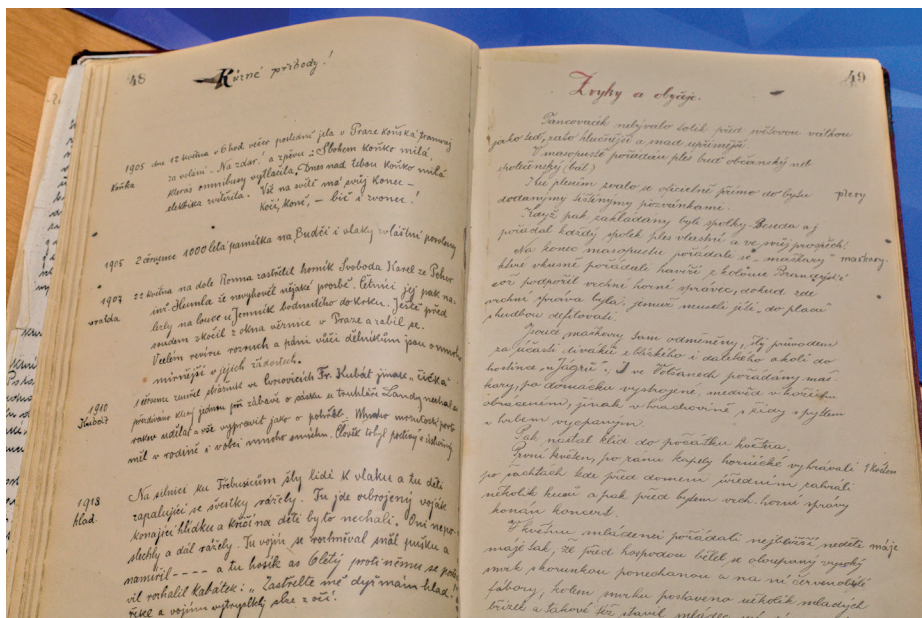 48
Různé příhody!
1905 dne 12 května v 6 hod. večer poslední jela v Praze koňská tramvaj
Koňka za volání „Na zdar“ a zpěvu: „Sbohem koňko milá,
kterás omnibusy vytlačila. Dnes nad tebou koňko milá
elektrika zvítězila. Vše na světě má svůj konec –
Kočí, koně, – bič i zvonec!
1905 2 července 1000 letá památka na Budči i vlaky zvláštní
1907 22 května na dole Ronna zastřelil horník Svoboda Karel ze
vražda inž. Hemla že nevyhověl nějaké prosbě. četníci jej pak na-
lezli na louce u Jemník bodnutého do krku. Ještě před
soudem skočil z okna věznice v Praze a zabil se.
V celém revíru rozruch a páni vůči dělníkům jsou o mnoho
mírnější v jejich žádostech.
1910 zemřel strážník ve Fr. Hubát jinak „čička“
Hubát jednou při zábavě o sázku u truhláře Landy nechal si
rakev udělat a vše vypravit jako o pohřbu.
měl v rodině i v obci mnoho smíchu. Člověk to byl poctivý a
1918 Na silnici ku Třebusicům šly lidé k vlaku a tu děti
hlad. zapalující se svestky Tu jde ozbrojený voják
konající hlídku a křičí na děti by to nechali. Oni nepo-
slechly a dál Tu vojín se rozhněval sňal pušku a
namířil - - - - a tu hošík as 6letý proti němu se posta-
vil rozhalil kabátek: „Zastřelte mě dyž mám hlad!“
řekl a vojínu vytryskly slze z očí.
49
Zvyky a obyčeje.
Tancovaček nebývalo tolik před světovou válkou
jako teď, zato hlučnější a snad upřímější.
V masopustě pořádán ples buď občanský neb
společenský (bál)
Ku plesům zvalo se oficielně přímo do bytu plesy
dodanými tištěnými pozvánkami.
Když pak zakládány byli spolky Beseda aj
pořádal každý spolek ples vlastní a ve svůj prospěch.
Na konec masopustu pořádali se „maškary“ maškary.
které vkusně pořádali havíři z kolonie
což podpořil vrchní horní správce, dokud zde
vrchní správa byla, jemuž museli jíti, do
s hudbou defilovati.
maškary sum odměněny, šly průvodem
za účasti diváků z blízkého i dalekého okolí do
hostince „u Jágrů“. I ve pořádány maš-
kary, po domácku vystrojené, medvěd v kožichu
obráceném, jinak v hrachovině, s pytlem
vycpaným.
Pak nastal klid do počátku května.
První květen, po ránu kapely hornické vyhrávali 1 květen
po šachtách kde před domem úředním zahráli
několik kusů a pak před bytem vrch. horní správy
konán koncert.
V květnu mládenci pořádali nejbližší neděli máje
máje tak, že před hospodou bělel se oloupaný vysoký
smrk s korunkou ponechanou a na ní červenobílé
fábory, kolem smrku postaveno několik mladých
břízek a takové též stavil mládec